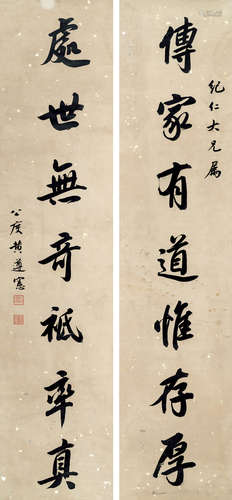 傳家有道惟存厚
紀仁大兄屬
處世無奇祗率真
公度黃遵憲